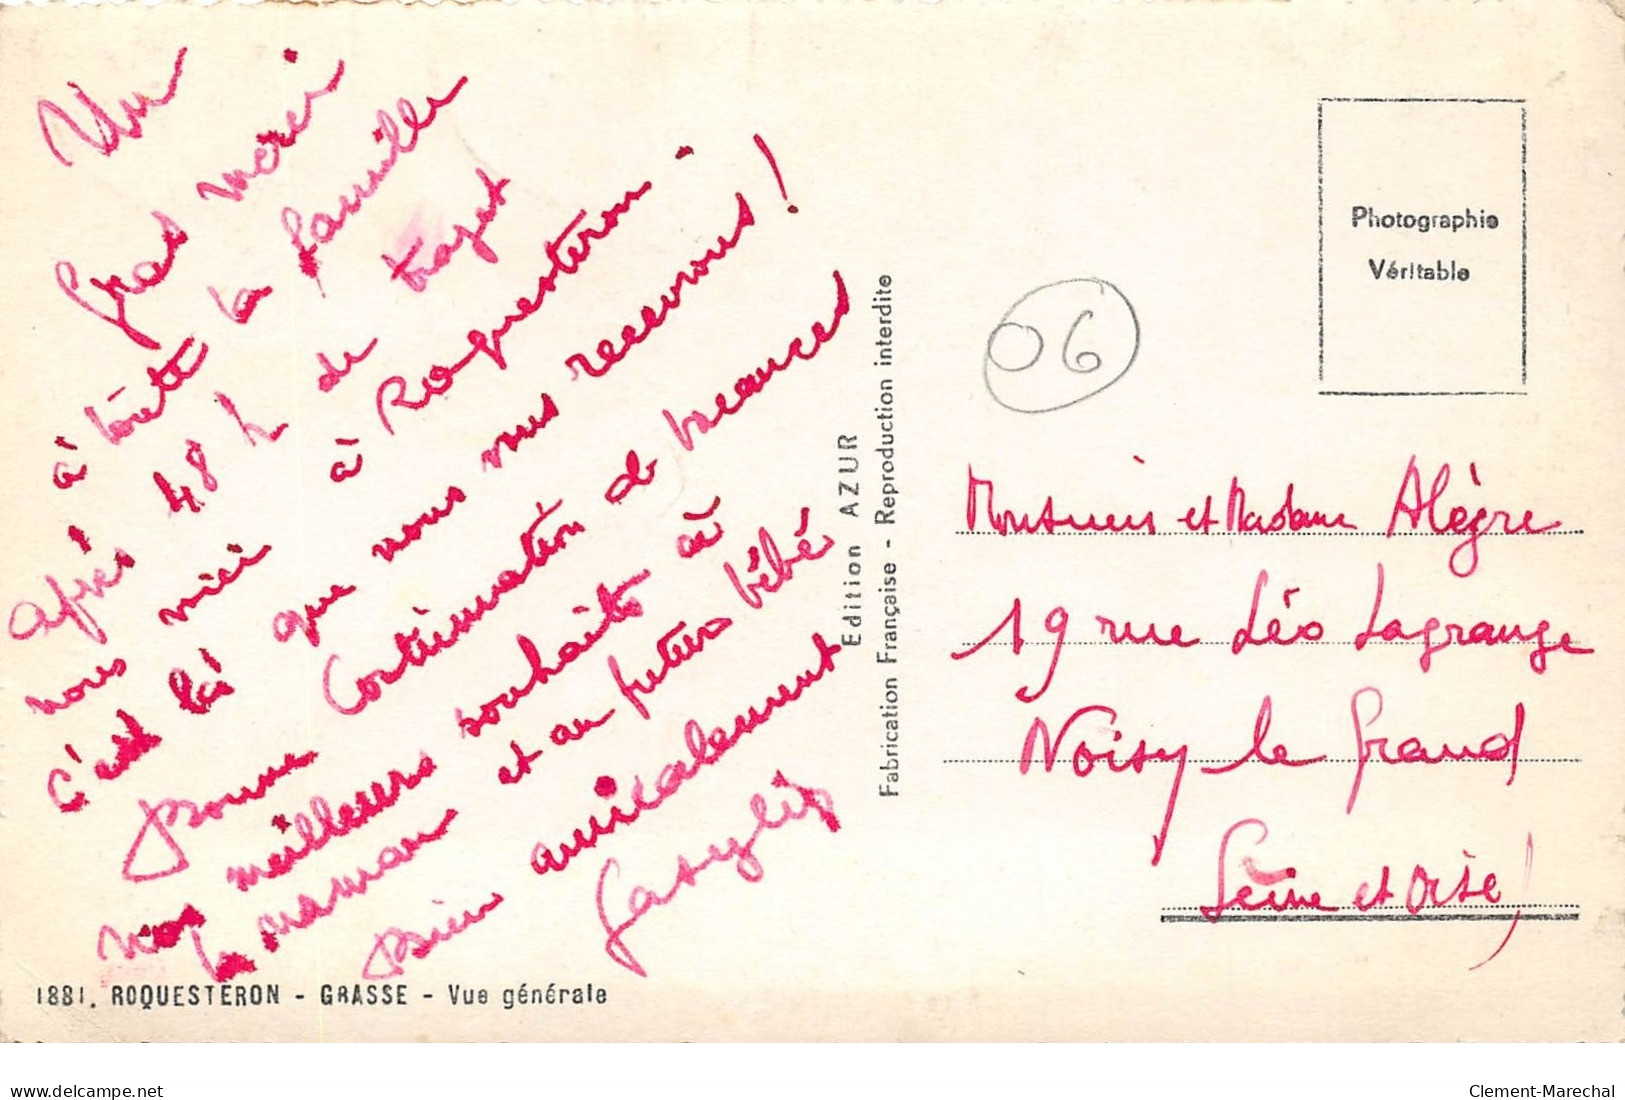 Un
gros merci
à toute la famille
après 48 h de trajet
nous voici à Roquesteron -
c'est là que nous vous recevrons !
Bonne continuation de vacances
nos meilleurs souhaits à
la maman et au futur bébé
Bien amicalement
1881. ROQUESTERON - GRASSE - Vue générale
Edition AZUR
Fabrication Française - Reproduction interdite
Photographie
Véritable
06
Monsieur et Madame Alègre
19 rue Léo Lagrange
Noisy le Grand
Seine et Oise)
delcampe.net
Clement-Marechal